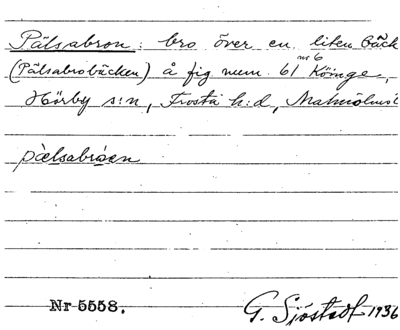 Pälsabron: bro över en liten bäck
(Pälsabrobäcken) å fig num. 61 nr 6 Köinge,
Hörby s:n, Frosta h:d, Malmöhus l
pàlsabróen
Nr 5558.
G. Sjöstedt 1936